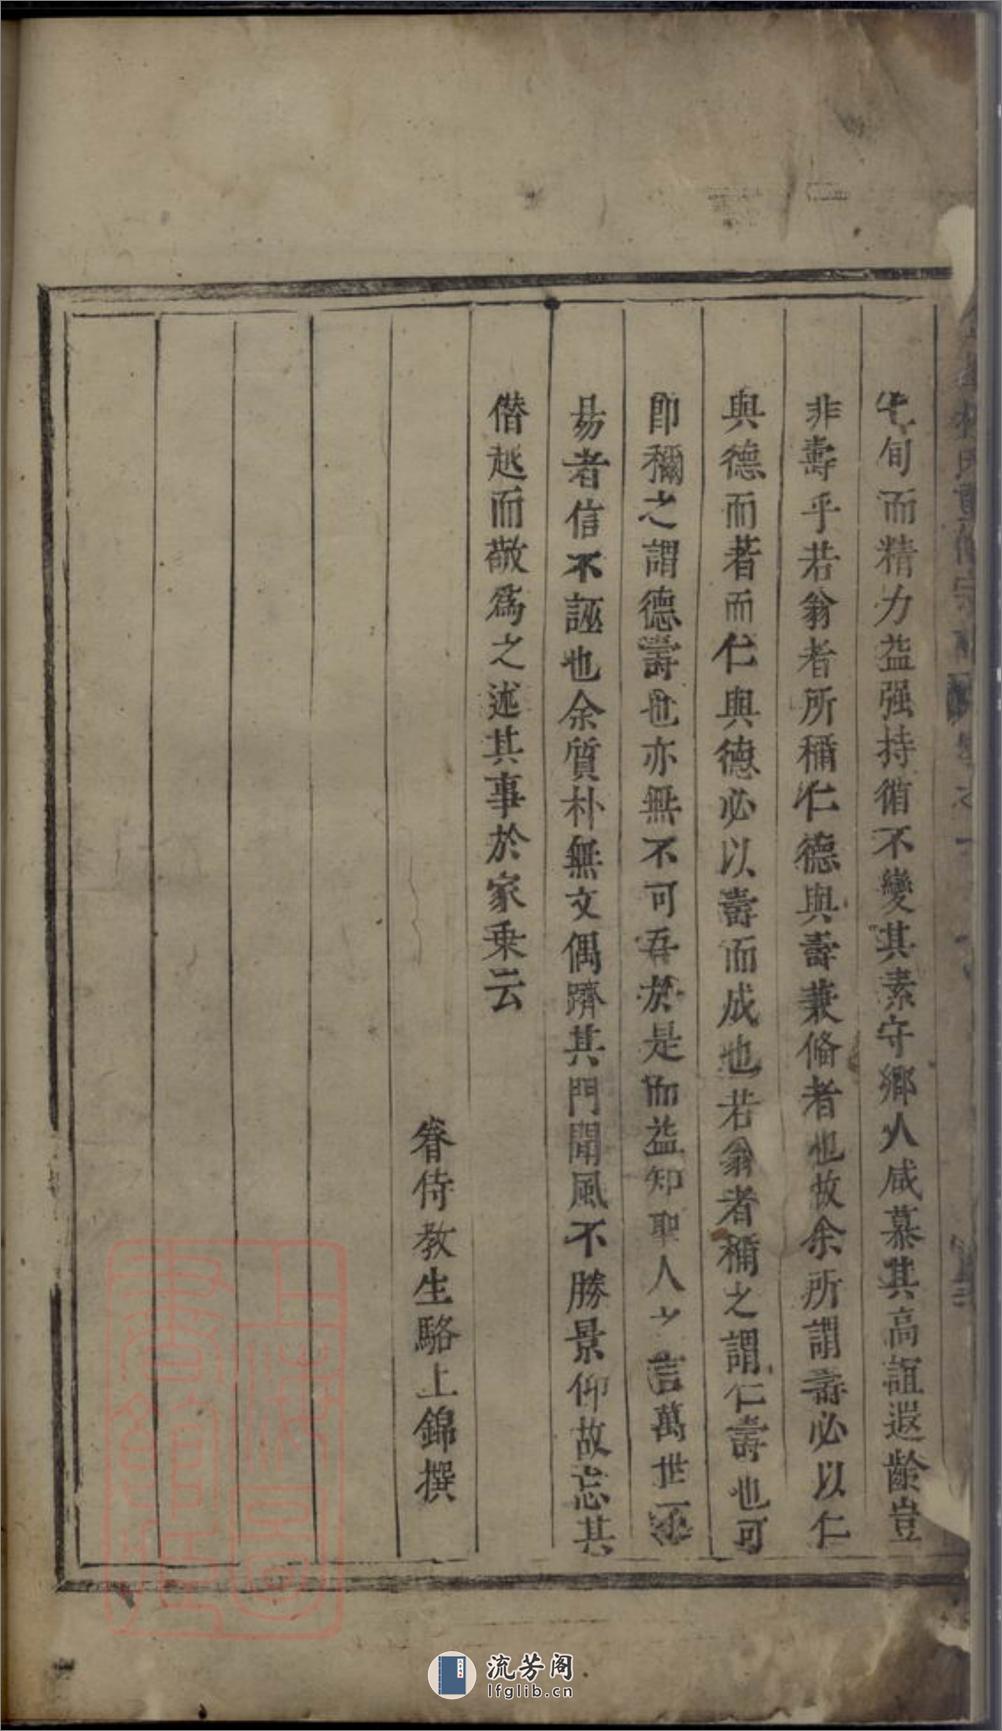 七旬而精力益强持循不變其素守鄉人咸慕其高誼遐齡豈
非壽乎若翁者所稱仁德與壽兼俻者也故余所謂壽必以仁
與德而著而仁與德必以壽而成也若翁者稱之謂仁壽也可
即稱之謂德壽也亦無不可吾於是而益知聖人之言萬世不
易者信不誣也余質朴無文偶躋其門聞風不勝景仰故忘其
僭越而敬爲之述其事於家乗云
眷侍教生駱上錦撰
上海圖書館藏
流芳阁
lfglib.cn